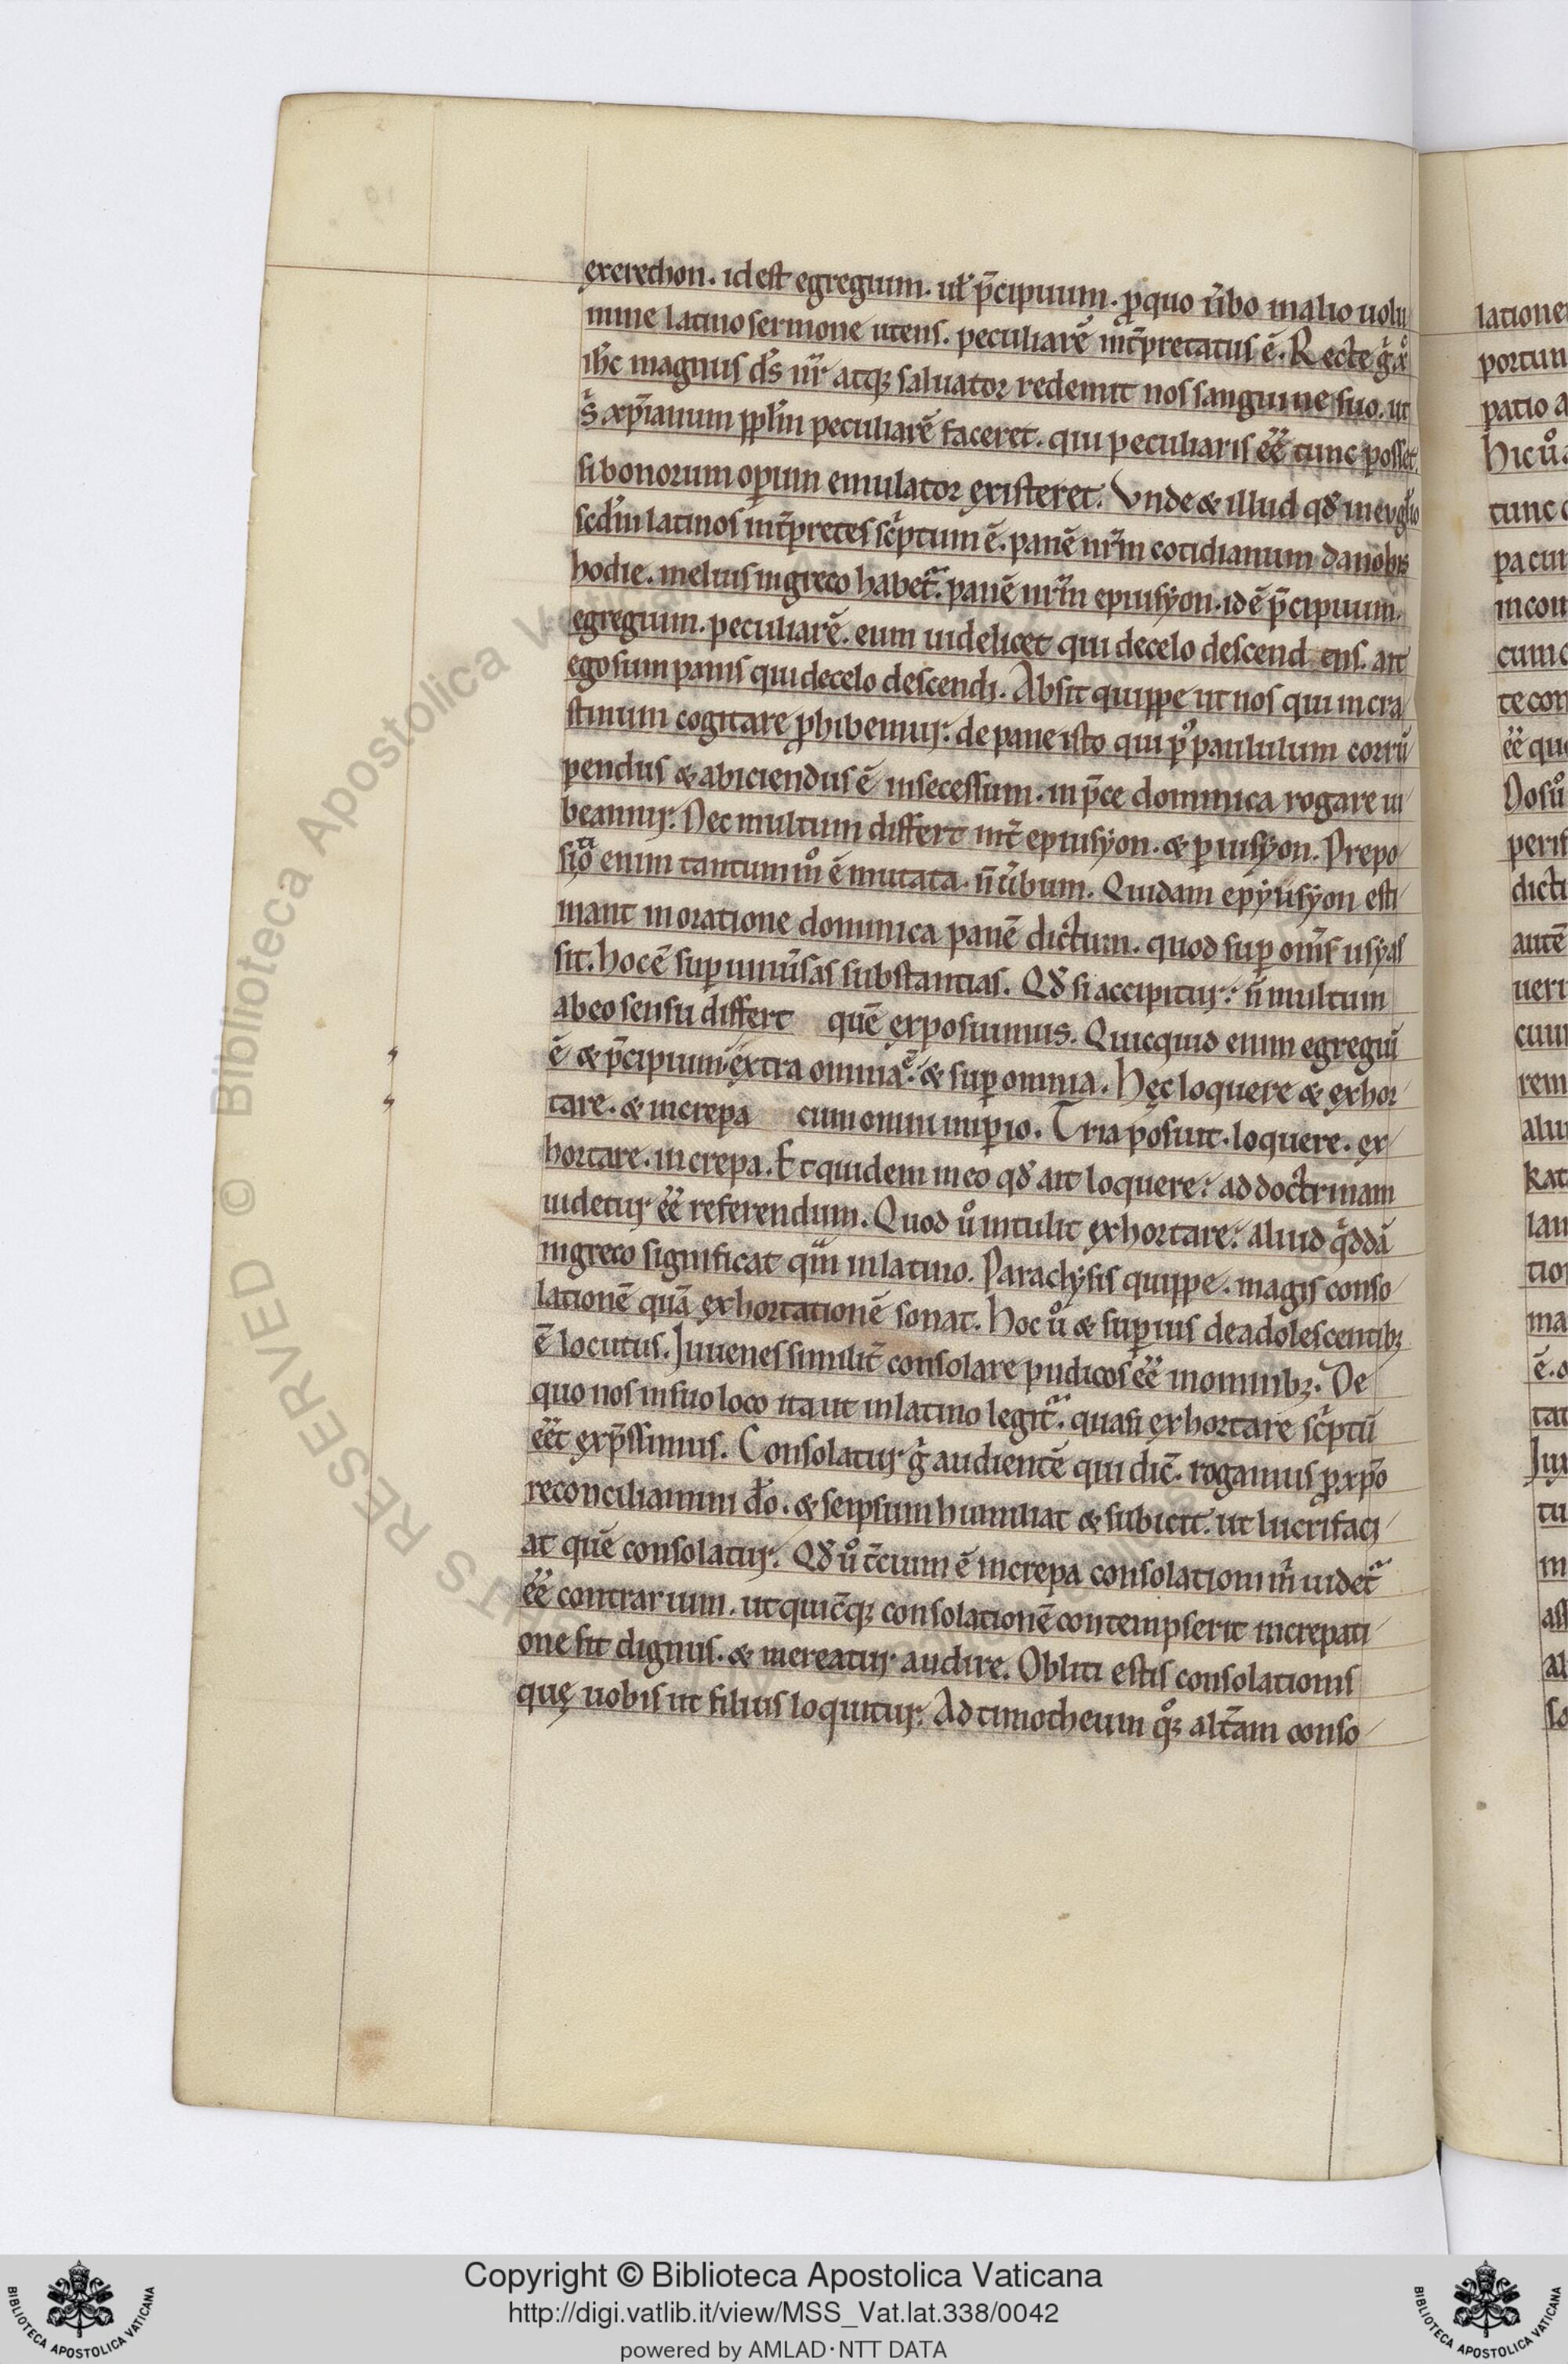 exerechon. id est egregium. ul̅ p̅cipuum. ꝓ quo u̅bo in alio uolu
mine latino sermone utens. peculiarē int̅pretatus ē. Recte gͥ xͦ
ih̅c magnus d̅s nr̅ atq; saluator redemit nos sanguine suo. ut
sͥ xp̅ianum ppl̅m peculiarē faceret. qui peculiaris ee̅ tunc posset.
si bonorum oꝑum emulator existeret. Vnde & illud qd̅ in eugl̅io
scd̅m latinos int̅pretes scͥptum ē. panē nr̅m cotidianum da nobis
hodie. melius in greco habet᷑. panē nr̅m epiusyon. id ē p̅cipuum.
egregium. peculiarē. eum uidelicet qui de celo descendens. ait
ego sum panis qui de celo descendi. Absit quippe ut nos qui in cra
stinum cogitare ꝓhibemur. de pane isto qui pꝰ paululum corrū
pendus & abiciendus ē in secessum. in p̅ce dominica rogare iu
beamur. Nec multum differt int̅ epiusyon. & ꝑiusyon. Prepo
sitio enim tantummͦ ē mutata. n̅ u̅bum. Quidam epyusyon esti
mant in oratione dominica panē dictum. quod suꝑ om̅s usyas
sit. hoc ē suꝑ uniu̅sas substantias. Qd̅ si accipitur. n̅ multum
ab eo sensu differt quē exposuimus. Quicquid enim egregiū
ē & p̅cipuum. extra omnia ē. & suꝑ omnia. Hęc loquere & exhor
tare. & increpa cum omni imꝑio. Tria posuit. loquere. ex
hortare. increpa. Et quidem in eo qd̅ ait loquere. ad doctrinam
uidetur ee̅ referendum. Quod uͦ intulit exhortare. aliud qͥddā
in greco significat qͣm in latino. Paraclysis quippe. magis conso
lationē quā exhortationē sonat. Hoc uͦ & suꝑius de adolescentib;
ē locutus. Iuuenes similit̅ consolare pudicos ee̅ in omnib;. De
quo nos in suo loco ita ut in latino legit᷑. quasi exhortare scͥptū
ee̅t exp̅ssimus. Consolatur gͥ audientē qui dic̅. rogamus ꝓ xp̅o
reconciliamini d̅o. & seipsum humiliat & subicit. ut lucrifaci
at quē consolatur. Qd̅ uͦ t̅cium ē increpa consolationi mͥ uidet᷑
ee̅ contrarium. ut quic̅q; consolationē contempserit increpati
one sit dignus. & mereatur audire. Obliti estis consolationis
quę uobis ut filiis loquitur. Ad timotheum qͦq; alt̅am conso
Copyright © Biblioteca Apostolica Vaticana
http://digi.vatlib.it/view/MSS_Vat.lat.338/0042
powered by AMLAD·NTT DATA
BIBLIOTECA APOSTOLICA VATICANA
BIBLIOTECA APOSTOLICA VATICANA